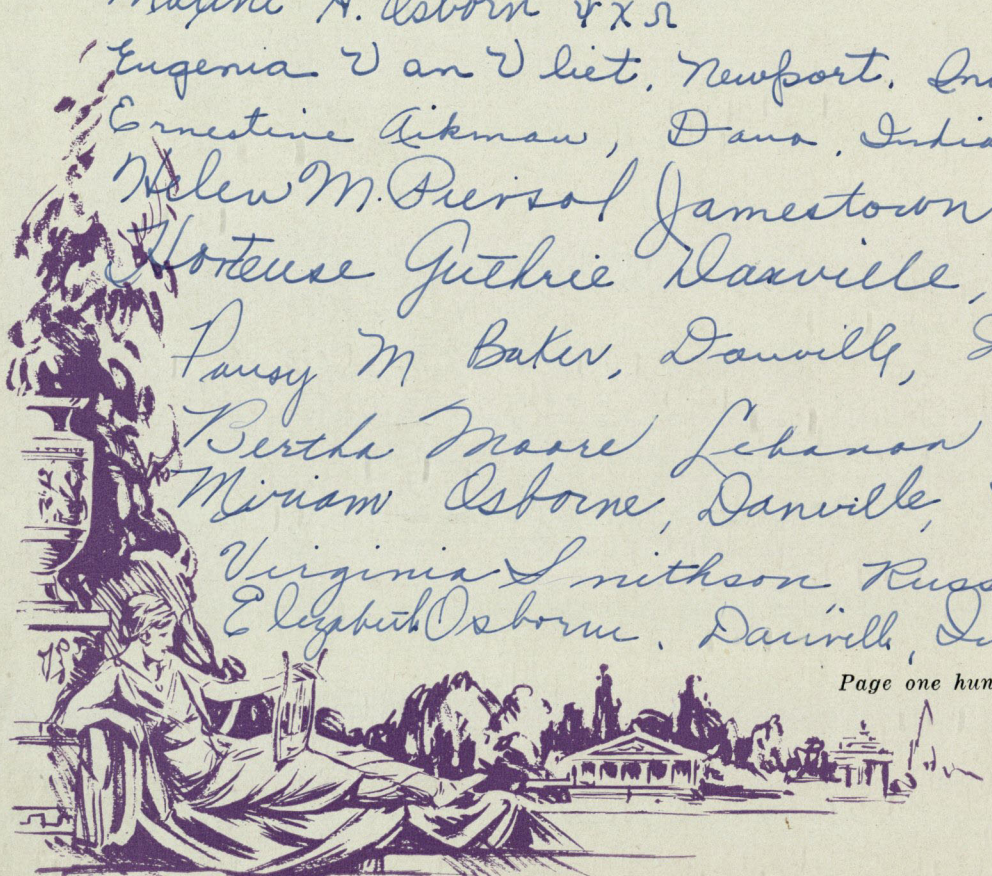 Maxine A. Osborn ΨΧΩ
Eugenia Van Vliet, Newport, Ind
Ernestine Aikman, Dana, India
Helen M. Piersol Jamestown
Hortense Guthrie Danville,
Pansy M Baker, Danville, I
Bertha Moore Lebanon
Miriam Osborne, Danville,
Virginia Smithson Russ
Elizabeth Osborne, Danville, In
Page one hun